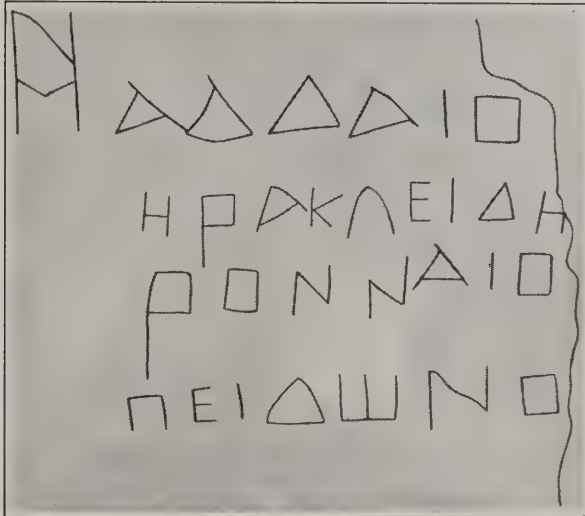 ΑΔΔΑΙΟ
ΗΡΑΚΛΕΙΔΗ
ΡΟΝΝΑΙΟ
ΠΕΙΔΩΝΟ